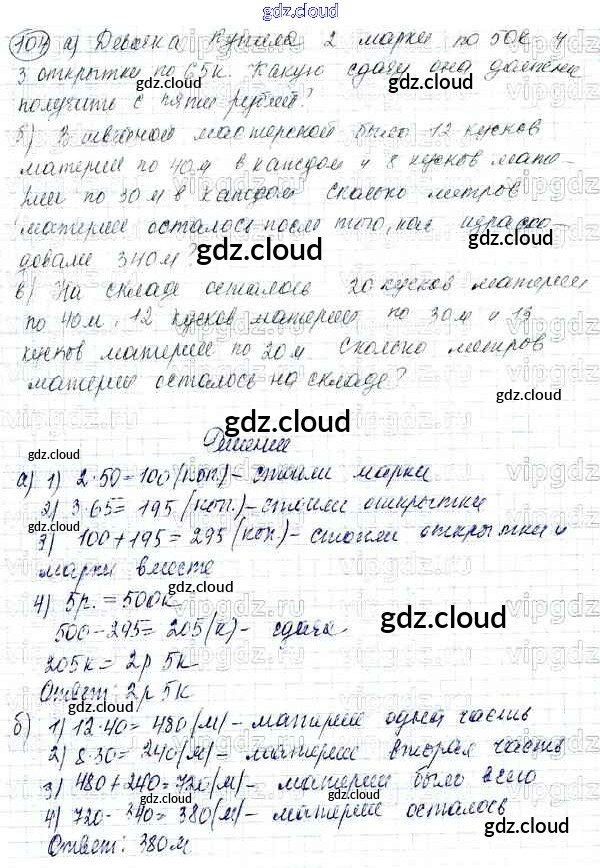 gdz.cloud
107 а) Девочка купила 2 марки по 50к и
3 открытки по 65к. Какую сдачу она должна
получить с пяти рублей?
б) В швейной мастерской было 12 кусков
материи по 40м в каждом и 8 кусков мате-
рии по 30м в каждом сколько метров
материи осталось после того, как израсхо-
довали 340м?
gdz.cloud
в) На складе осталось 20 кусков материи
по 40м, 12 кусков материи по 30м и 15
кусков материи по 20м. Сколько метров
материи осталось на складе?
gdz.cloud
Решение
gdz.cloud gdz.cloud
а) 1) 2·50=100(коп.)- стоили марки
2) 3·65= 195(коп.)- стоили открытки
3) 100+195= 295(коп.)- стоили открытки и
марки вместе
4) 5р.=500к
500-295= 205(к)- сдача
gdz.cloud
205к= 2р 5к
Ответ: 2р 5к
б) 1) 12·40= 480(м)- материи одна часть
2) 8·30= 240(м)- материи вторая часть
3) 480+240=720(м)- материи было всего
4) 720- 340= 380(м)- материи осталось
Ответ: 380м
gdz.cloud gdz.cloud